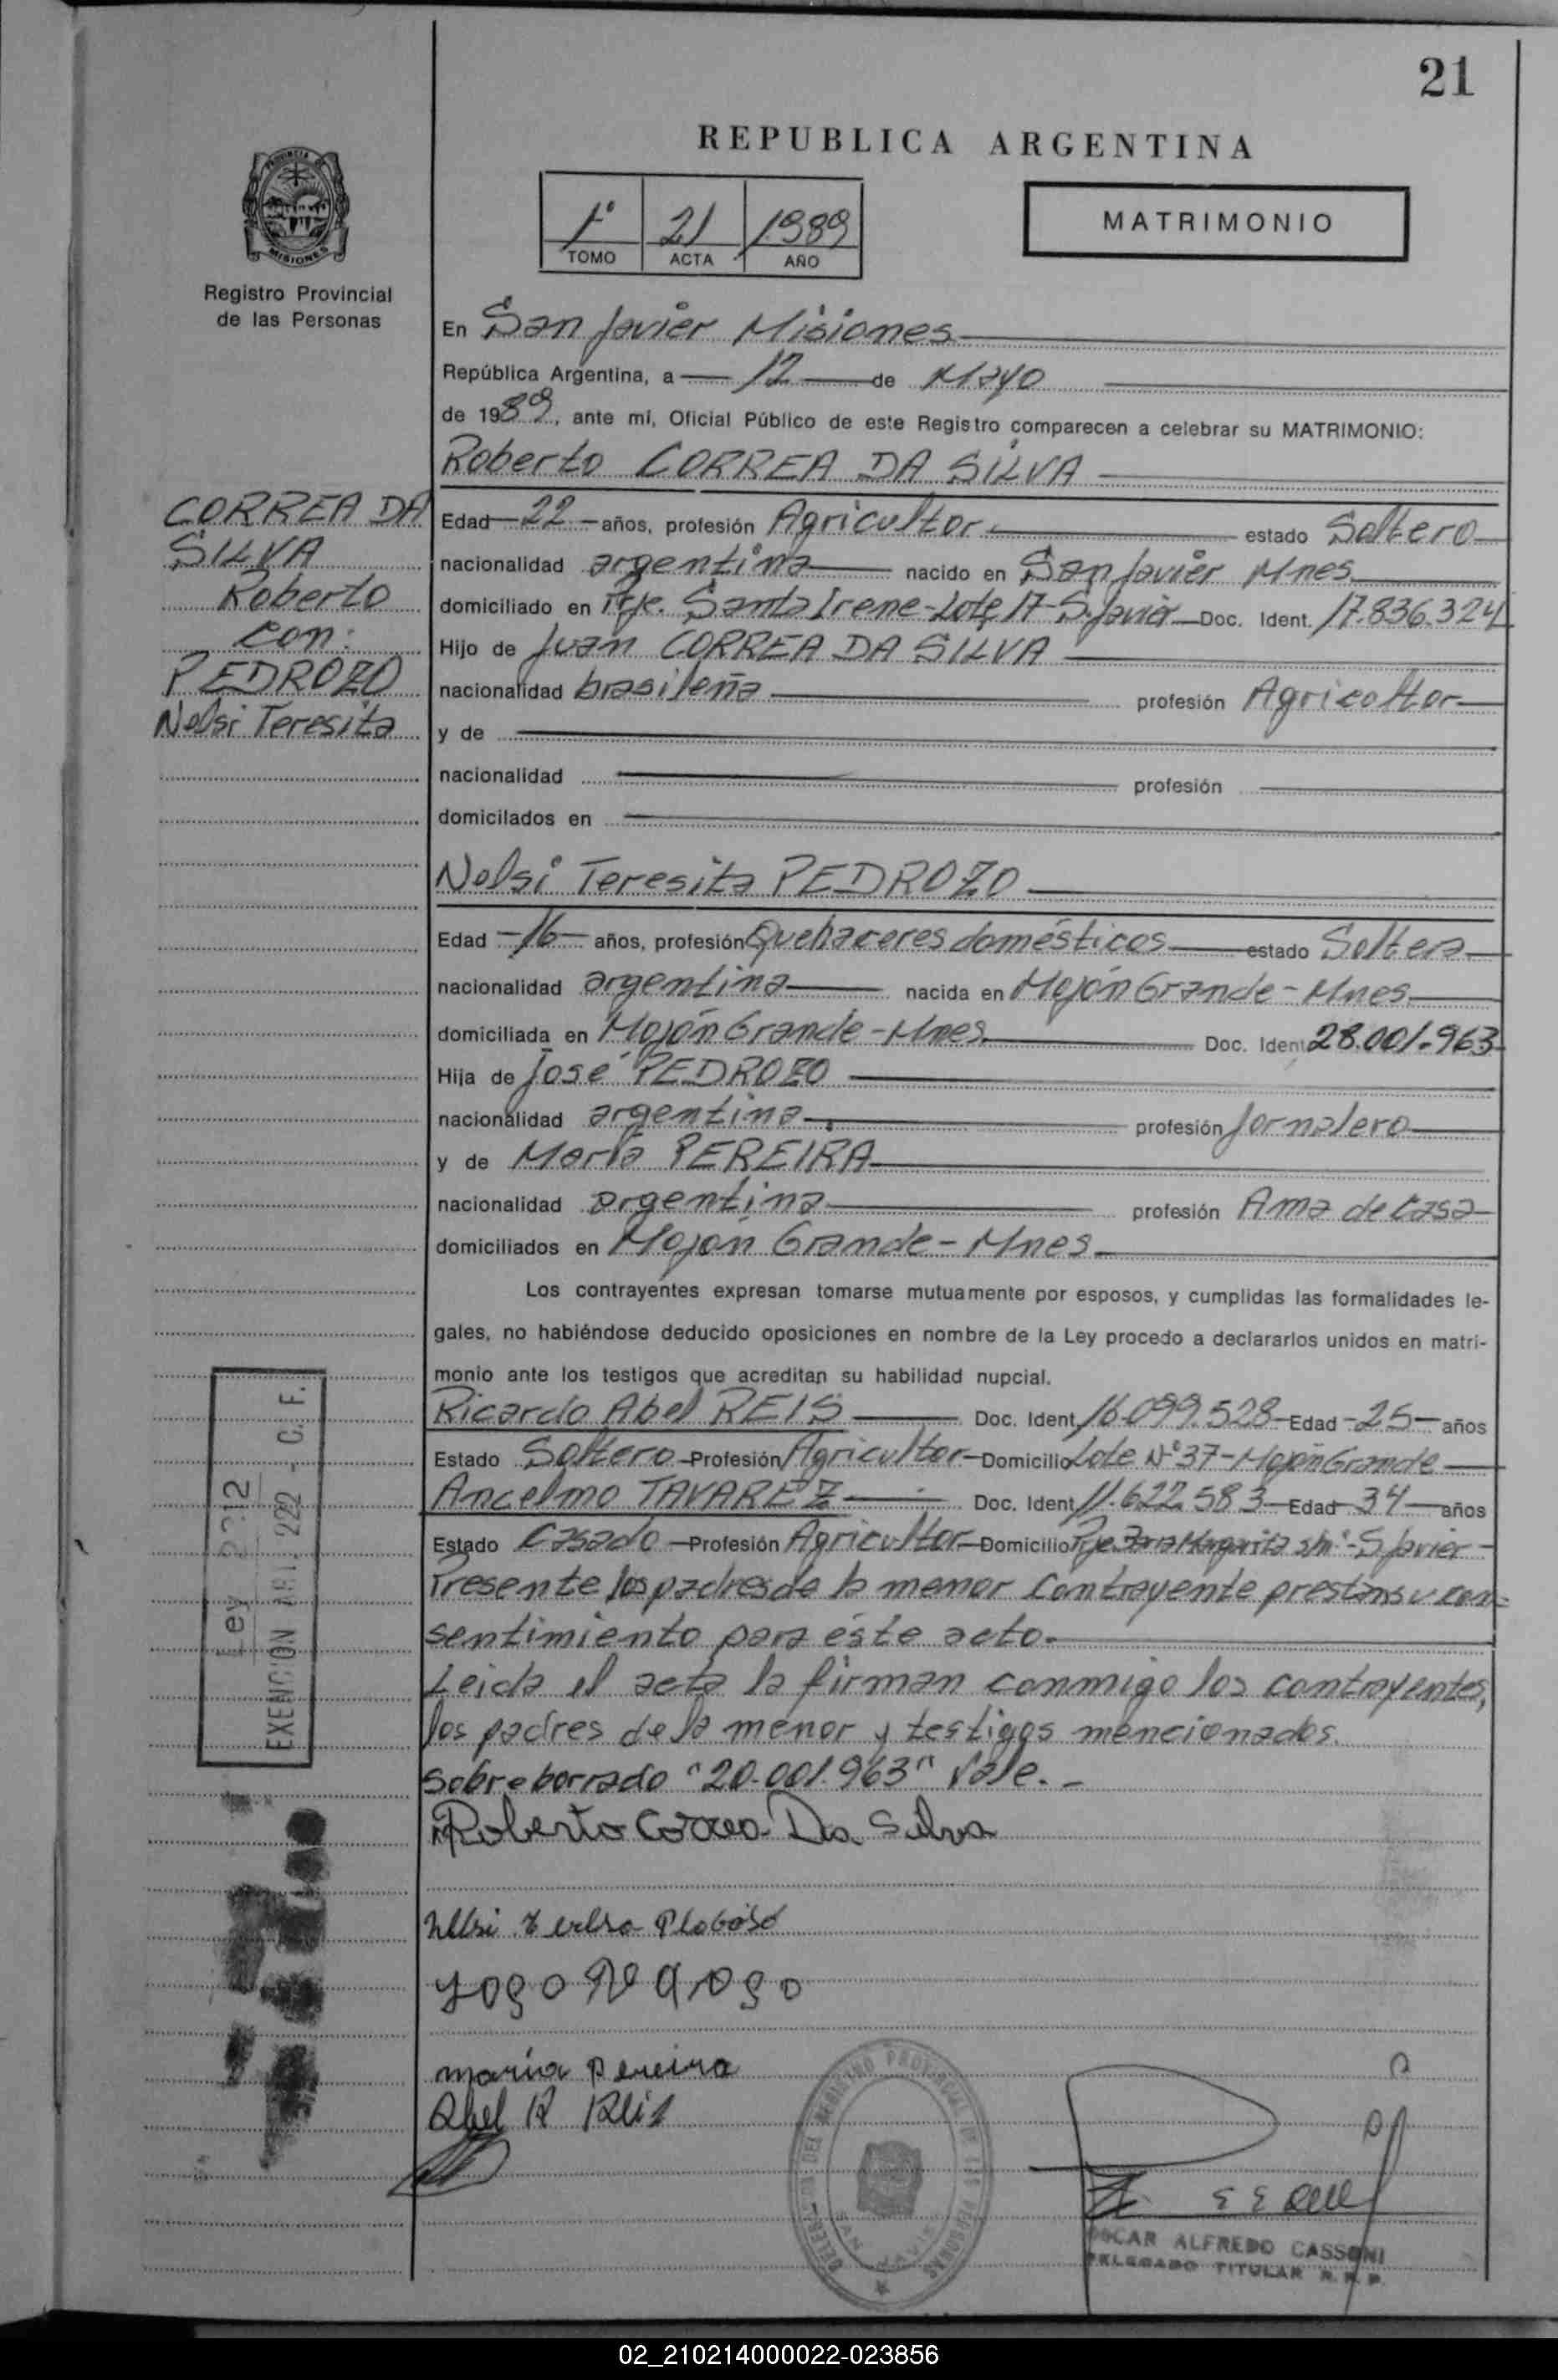 21
REPUBLICA ARGENTINA
1° 21 1989
TOMO ACTA AÑO
MATRIMONIO
Registro Provincial
de las Personas
En San Javier Misiones
República Argentina, a 12 de Mayo
de 1989, ante mí, Oficial Público de este Registro comparecen a celebrar su MATRIMONIO:
Roberto CORREA DA SILVA
CORREA DA
SILVA
Roberto
con:
PEDROZO
Nelsi Teresita
Edad 22 años, profesión Agricultor estado Soltero
nacionalidad argentina nacido en San Javier Mnes
domiciliado en Pje. Santa Irene-Lote 17-S.Javier Doc. Ident. 17.836.324
Hijo de Juan CORREA DA SILVA
nacionalidad brasileña profesión Agricultor
y de
nacionalidad profesión
domicilados en
Nelsi Teresita PEDROZO
Edad 16 años, profesión Quehaceres domésticos estado Soltera
nacionalidad argentina nacida en Mojón Grande-Mnes
domiciliada en Mojón Grande-Mnes Doc. Ident. 28.001.963
Hija de José PEDROZO
nacionalidad argentina profesión Jornalero
y de María PEREIRA
nacionalidad argentina profesión Ama de Casa
domiciliados en Mojón Grande-Mnes
Los contrayentes expresan tomarse mutuamente por esposos, y cumplidas las formalidades le-
gales, no habiéndose deducido oposiciones en nombre de la Ley procedo a declararlos unidos en matri-
monio ante los testigos que acreditan su habilidad nupcial.
Ricardo Abel REIS Doc. Ident. 16.099.528 Edad 25 años
Estado Soltero Profesión Agricultor Domicilio Lote N°37-Mojón Grande
Ancelmo TAVAREZ Doc. Ident. 11.622.583 Edad 34 años
Estado Casado Profesión Agricultor Domicilio Pje. Margarita s/n°-S.Javier
Presente los padres de la menor contrayente prestan su con-
sentimiento para éste acto.
Leida el acta la firman conmigo los contrayentes,
los padres de la menor y testigos mencionados.
Sobreborrado "20.001.963" Vale.-
Ley 2212
EXENCION ART. 222 - C. F.
Roberto Correa Da Silva
maría pereira
Abel R Reis
DELEGACION DEL REGISTRO PROVINCIAL DE LAS PERSONAS
SAN JAVIER
OSCAR ALFREDO CASSONI
DELEGADO TITULAR R. P. P.
02_210214000022-023856